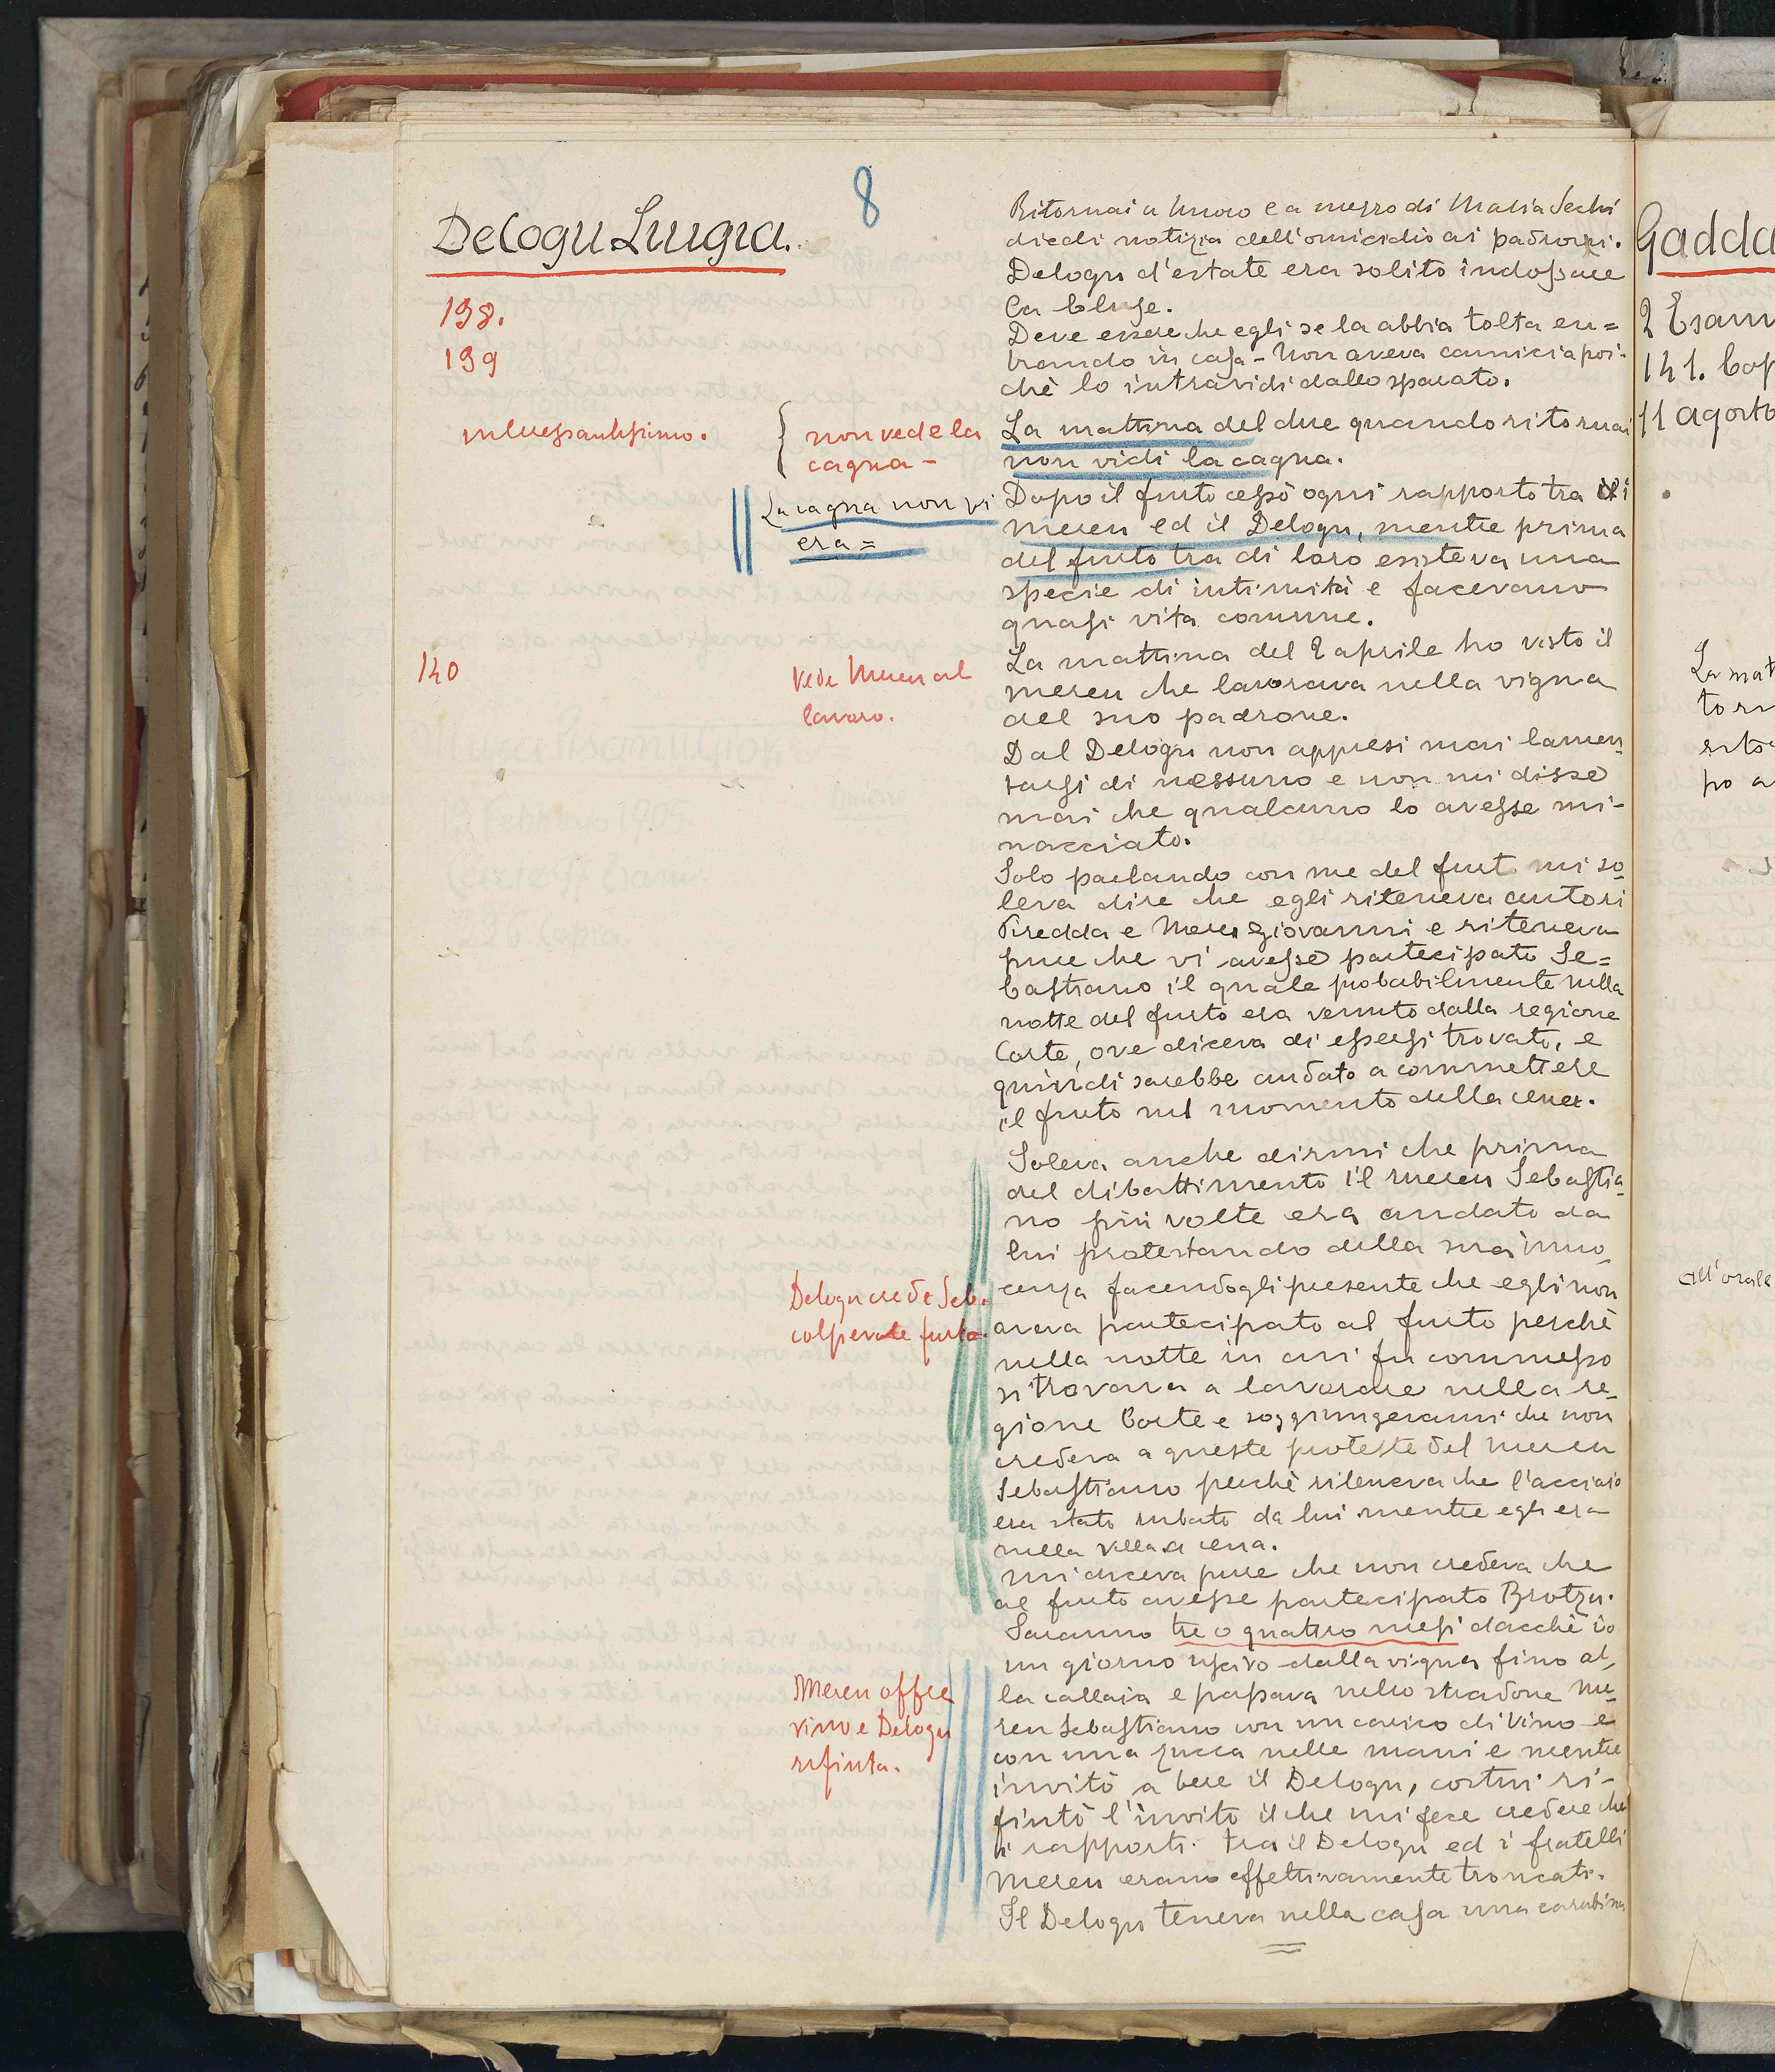 8
Delogu Luigia.
138.
139
interessantissimo.
non vede la
cagna -
La cagna non vi
era =
140
Vede Mereu al
lavoro.
Delogu crede Seb.
colpevole furto.
Mereu offre
vino e Delogu
rifiuta.
Ritornai a Nuoro e a mezzo di Maria Sechi
diedi notizia dell'omicidio ai padroni.
Delogu d'estate era solito indossare
la bluse.
Deve essere che egli se la abbia tolta en=
trando in casa - Non aveva camicia poi-
chè lo intravidi dallo sparato.
La mattina del due quando ritornai
non vidi la cagna.
Dopo il furto cessò ogni rapporto tra i
mereu ed il Delogu, mentre prima
del furto tra di loro esisteva una
specie di intimità e facevano
quasi vita comune.
La mattina del 2 aprile ho visto il
mereu che lavorava nella vigna
del suo padrone.
Dal Delogu non appresi mai lamen-
tarsi di nessuno e non mi disse
mai che qualcuno lo avesse mi-
nacciato.
Solo parlando con me del furto mi so-
leva dire che egli riteneva autori
Piredda e Mereu giovanni e riteneva
pure che vi avesse partecipato Se=
bastiano il quale probabilmente nella
notte del furto era venuto dalla regione
Corte, ove diceva di essersi trovato, e
quindi sarebbe andato a commettere
il furto nel momento della cena.
Soleva anche dirmi che prima
del dibattimento il mereu Sebastia-
no più volte era andato da
lui protestando della sua inno-
cenza facendogli presente che egli non
aveva partecipato al furto perchè
nella notte in cui fu commesso
si trovava a lavorare nella re-
gione Corte e soggiungevami che non
credeva a queste proteste del mereu
Sebastiano perchè riteneva che l'acciaio
era stato rubato da lui mentre egli era
nella villa a cena.
mi diceva pure che non credeva che
al furto avesse partecipato Brotzu.
Saranno tre o quattro mesi dacchè io
un giorno uscivo dalla vigna fino al-
la callaia e passava nello stradone Me-
reu Sebastiano con un carico di vino e
con una zucca nelle mani e mentre
invitò a bere il Delogu, costui ri-
fiutò l'invito il che mi fece credere che
i rapporti tra il Delogu ed i fratelli
mereu erano effettivamente troncati.
Il Delogu teneva nella casa una carabina
Gadda
2 Esam
141. Cop
11 agosto
La mat
torn
po a
all'orale